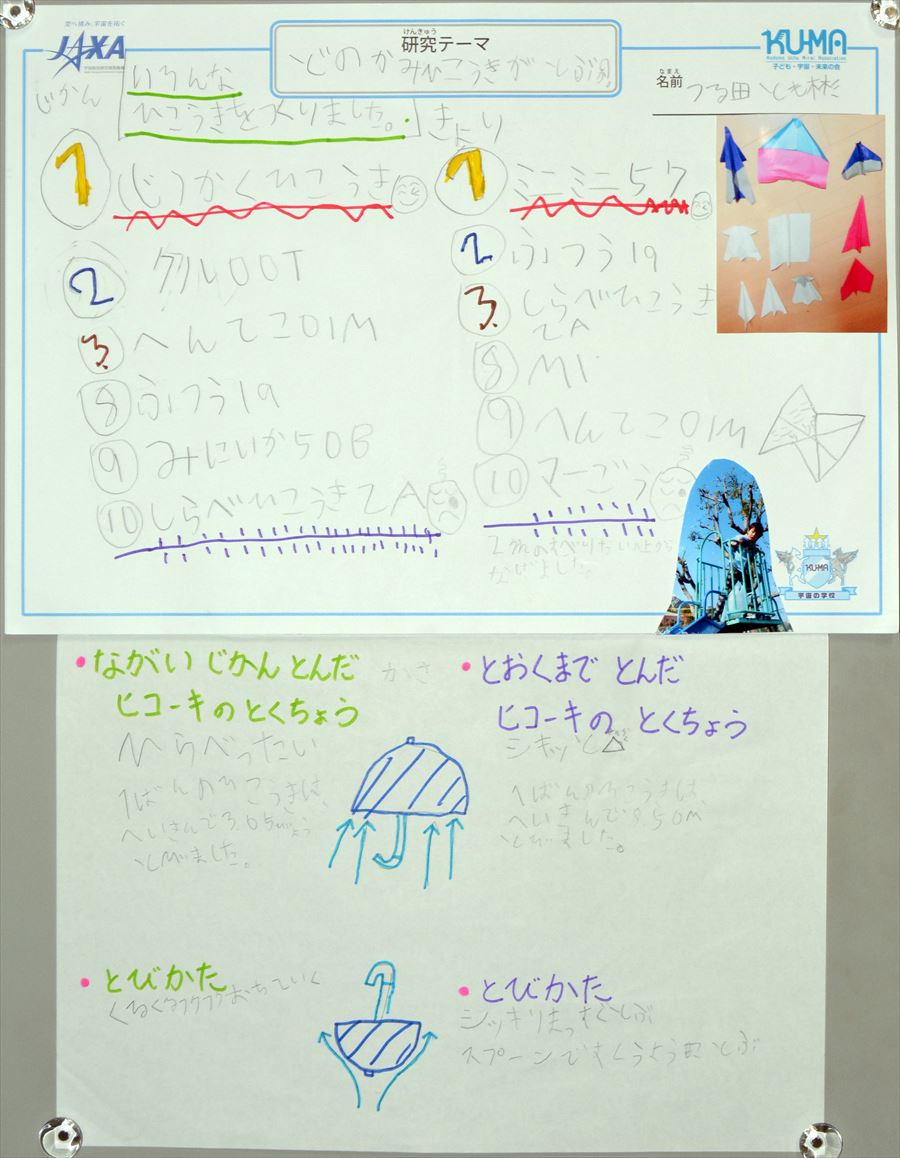 空へ挑み、宇宙を拓く
JAXA
けんきゅう
研究テーマ
どのかみひこうきがとぶ
KUMA
Kodomo Uchu Mirai Association
子ども・宇宙・未来の会
なまえ
名前
つる田 とも彬
じかん
いろんな
ひこうきをつくりました。
きょり
1 じつかくひこうき
2
3. へんてこ01M
8 ふつう19
9 みにいか50B
10 しらべひこうきZA
1 ミニミニ57
2 ふつう19
3. しらべひこうき
ZA
8 M1
9 へんてこ01M
10 マーごう
2mのすべりだいの上から
KUMA
宇宙の学校
・ながい じかん とんだ
ヒコーキの とくちょう
かさ
ひらべったい
1ばんのひこうきは、
へいきんで3.05びょう
とびました。
・とおくまで とんだ
ヒコーキの とくちょう
1ばんのひこうきは
へいきんで8.50m
とびました。
・とびかた
くるくるフワフワおちていく
・とびかた
シッキリまっすぐとぶ
スプーンですくうようにとぶ